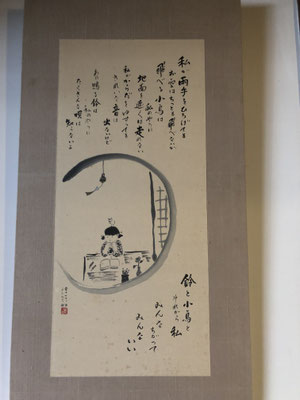 私が両手をひろげても
お空はちっとも飛べないが
飛べる小鳥は
私のやうに
地面を速くは走れない
私がからだをゆすっても
きれいな音は出ないけど
あの鳴る鈴は
私のやうに
たくさんな唄は
知らないよ
鈴と小鳥と
それから私
みんなちがって
みんないい